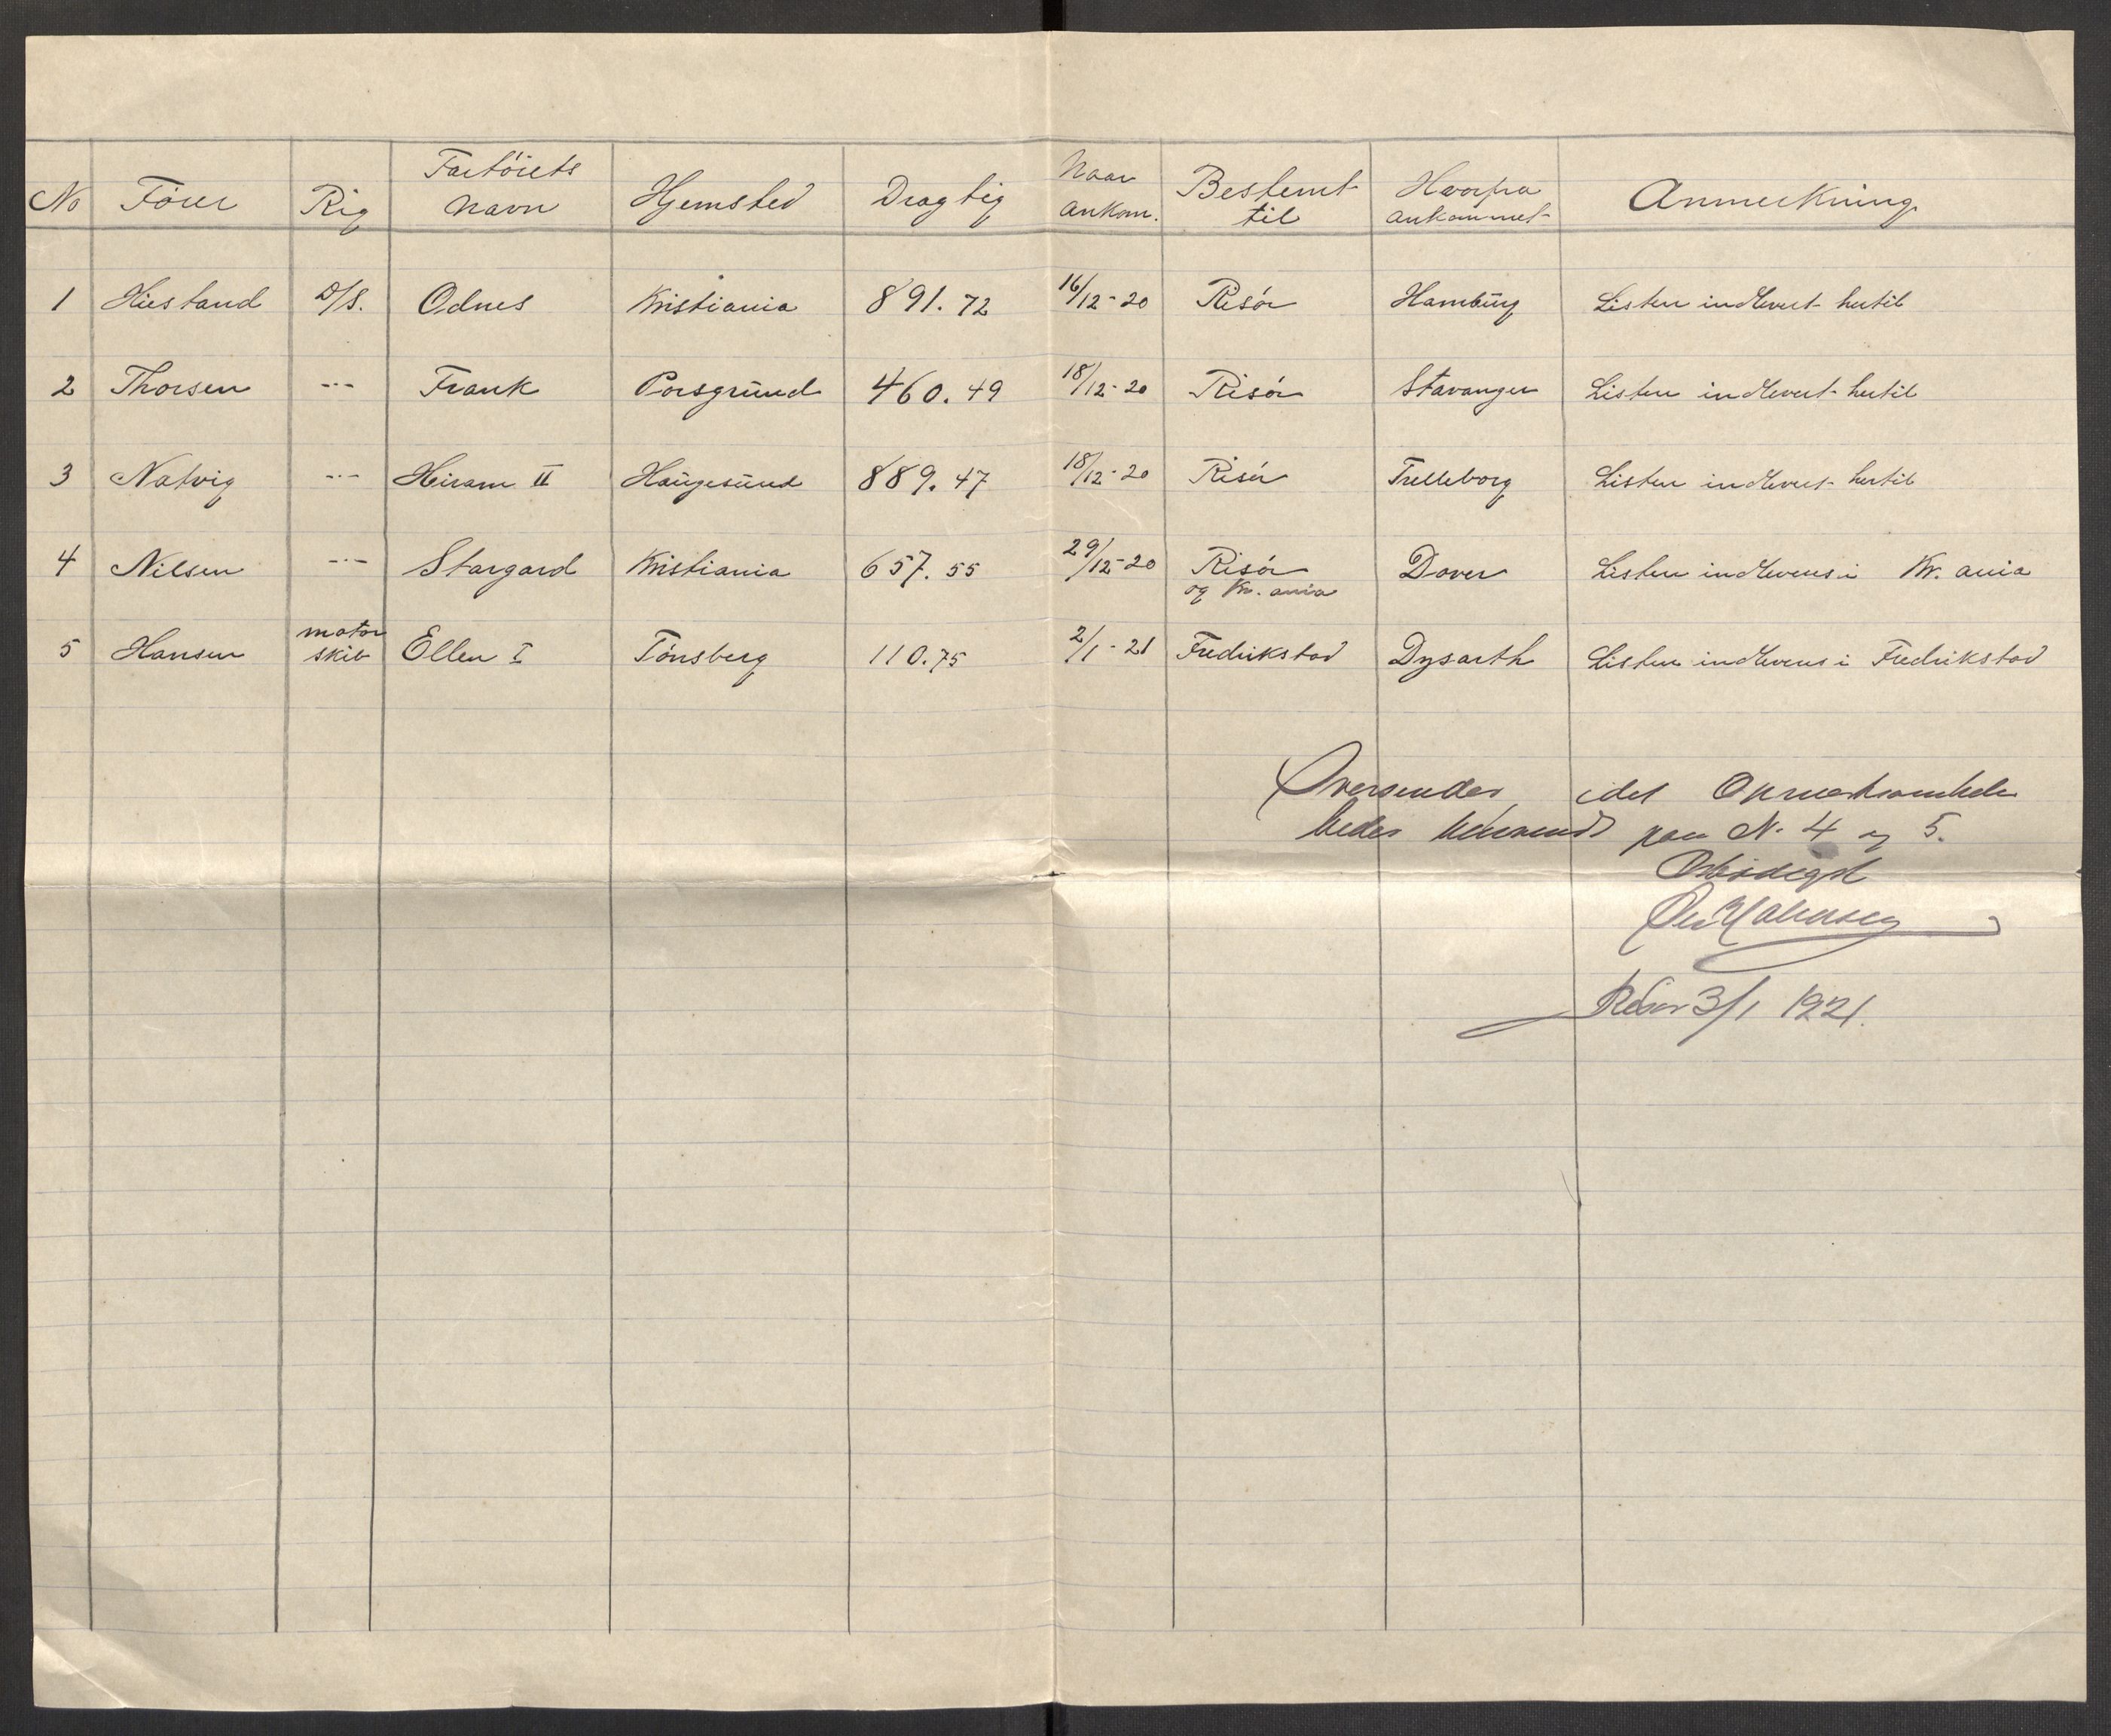 No Fører Rig Fartöiets Navn Hjemsted Dragtig Naar ankom. Bestemt til Hvorfra ankommet Anmerkning
1 Hiestand D/S. Odnes Kristiania 891.72 16/12-20 Risör Hamburg Listen indlevert hertil
2 Thorsen -"- Frank Porsgrund 460.49 18/12-20 Risör Stavanger Listen indlevert hertil
3 Natvig -"- Heiram II Haugesund 889.47 18/12-20 Risör Trelleborg Listen indlevert hertil
4 Nilsen -"- Stargard Kristiania 657.55 29/12-20 Risör og Kr.ania Dover Listen indleveres i Kr.ania
5 Hansen motor skib Ellen I Tönsberg 110.75 2/1-21 Fredrikstad Dysarth Listen indleveres i Fredrikstad
Oversendes, idet Opmerksomheden
bedes henvendt paa N. 4 og 5.
Ærbødigst
Risør 3/1 1921.